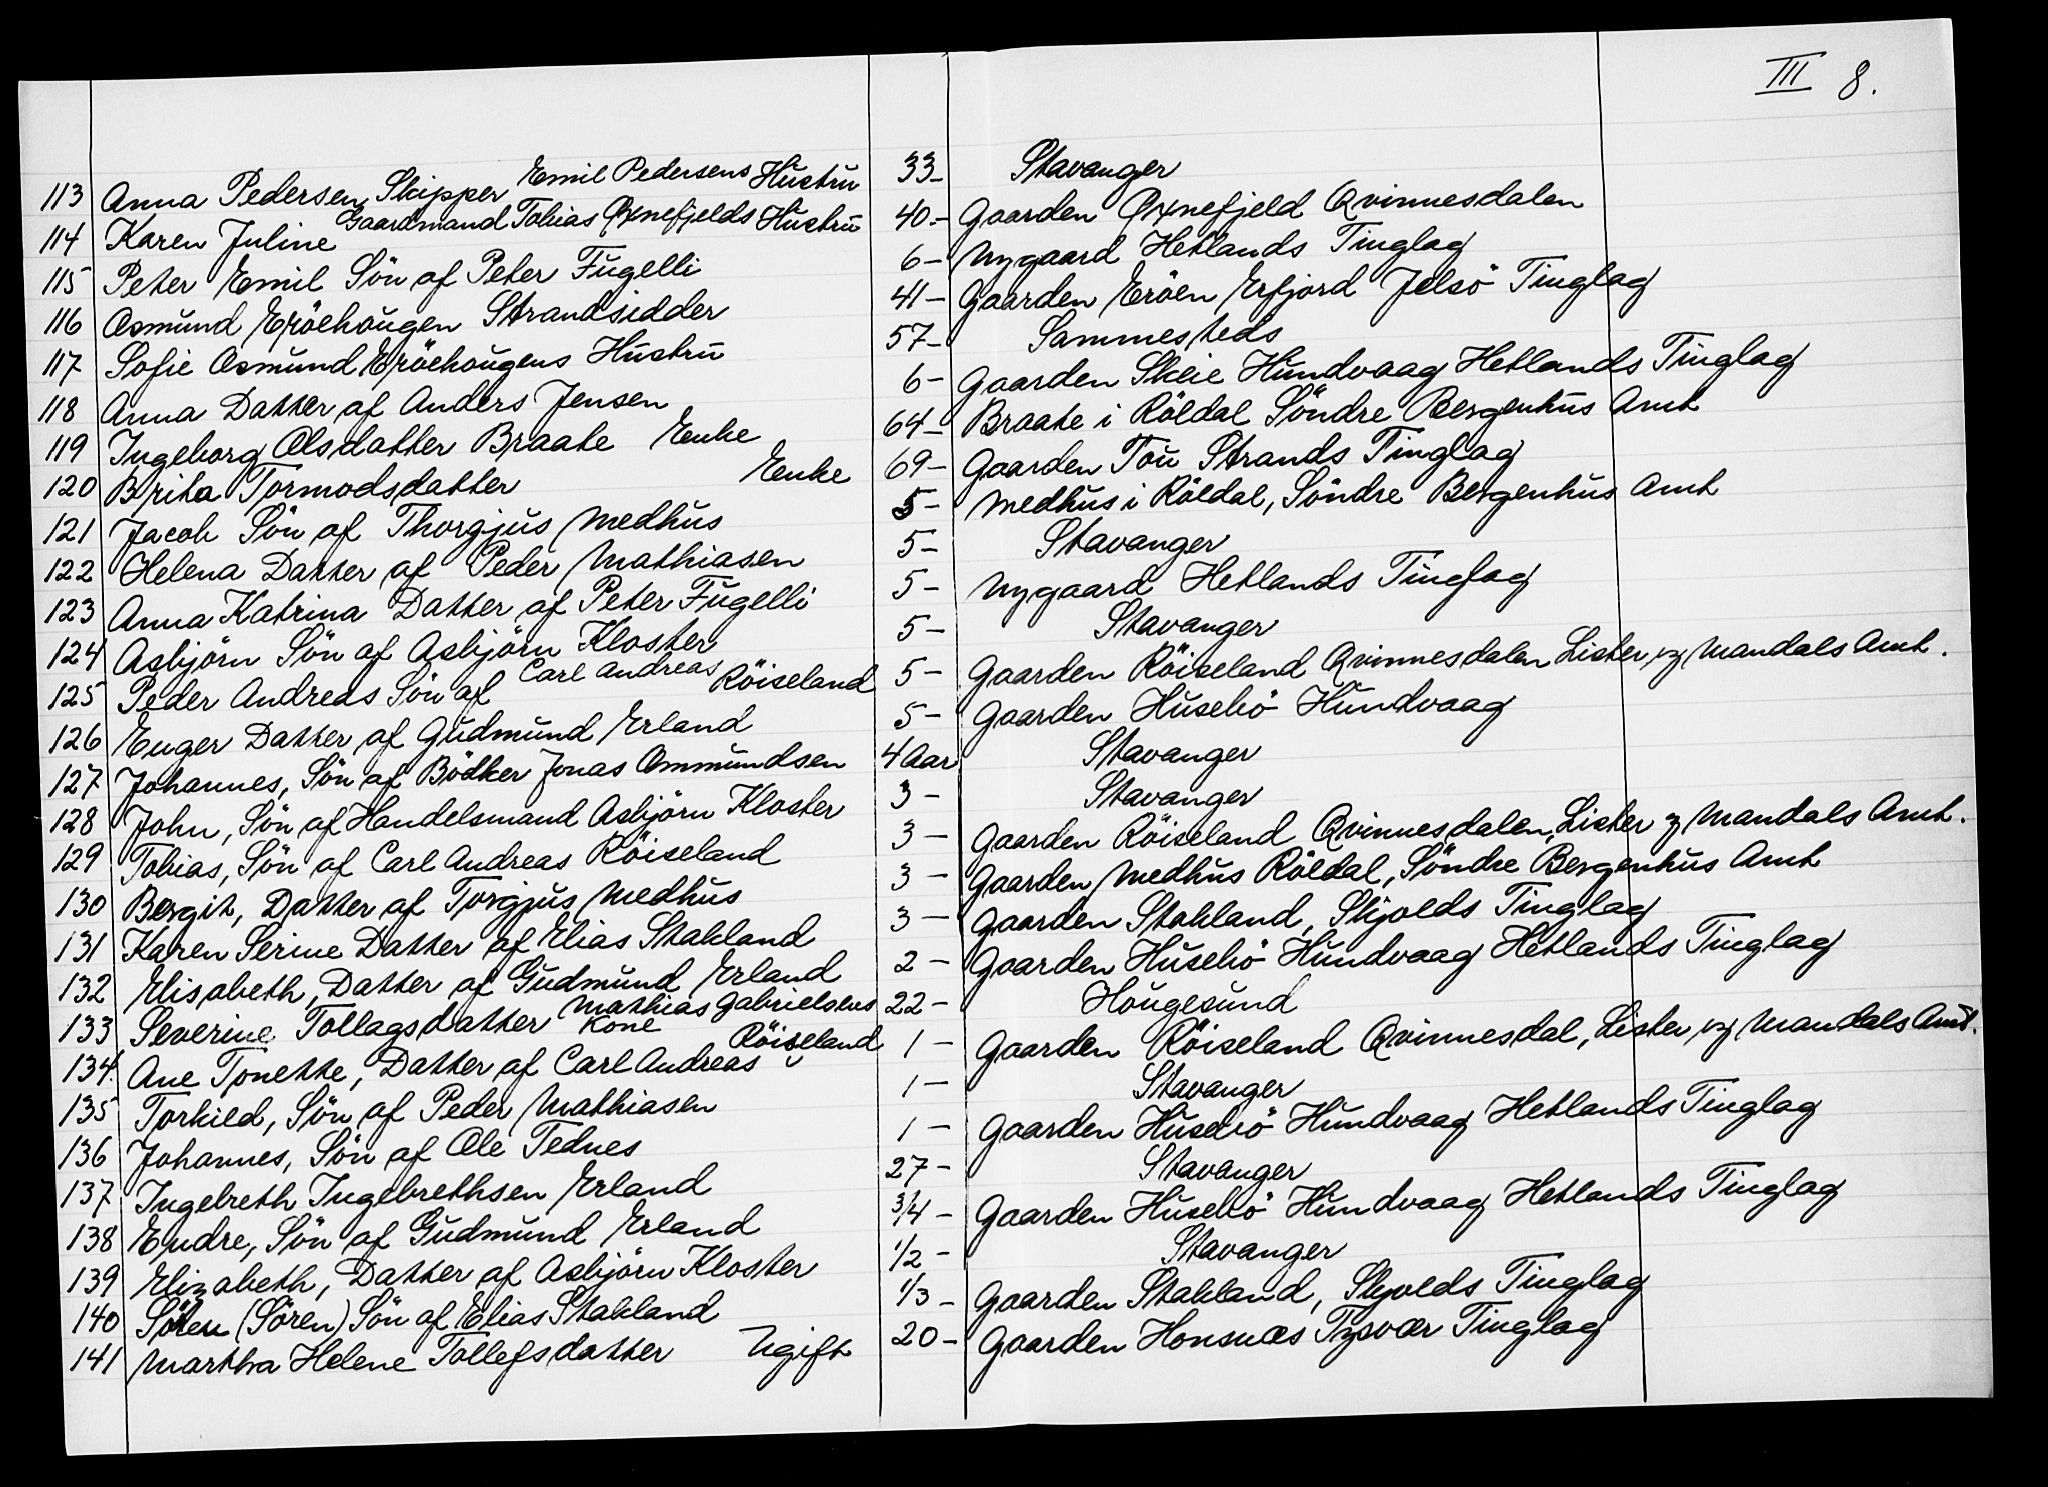 III 8.
113 Anna Pedersen, Skipper Emil Pedersens Hustru 33- Stavanger
114 Karen Juline Gaardmand Tobias Øxnefjelds Hustru 40- Gaarden Øxnefjeld Qvinnesdalen
115 Peter Emil Sön af Peter Fugelli 6- Nygaard Hetlands Tinglag
116 Osmund Eröehougen Strandsidder 41- Gaarden Eröen, Erfjord Jelsö Tinglag
117 Sofie Osmund Eröehougens Hustru 57- Sammesteds
118 Anna Datter af Anders Jensen 6- Gaarden Skeie Hundvaag Hetlands Tinglag
119 Ingeborg Olsdatter Braate Enke 64- Braate i Röldal Söndre Bergenhus Amt
120 Brita Tormodsdatter Enke 69- Gaarden Tou Strands Tinglag
121 Jacob Sön af Thorgjus Medhus 5- Medhus i Röldal, Söndre Bergenhus Amt
122 Helena Datter af Peder Mathiasen 5- Stavanger
123 Anna Katrina Datter af Peter Fugelli 5- Nygaard Hetlands Tinglag
124 Asbjörn Sön af Asbjörn Kloster 5- Stavanger
125 Peder Andreas Sön af Carl Andreas Röiseland 5- Gaarden Röiseland Qvinnesdalen Lister og Mandals Amt.
126 Enger Datter af Gudmund Erland 5- Gaarden Husebö Hundvaag
127 Johannes, Sön af Bödker Jonas Ommundsen 4 Aar Stavanger
128 John, Sön af Handelsmand Asbjörn Kloster 3- Stavanger
129 Tobias, Sön af Carl Andreas Röiseland 3- Gaarden Röiseland Qvinnesdalen, Lister og Mandals Amt.
130 Bergit, Datter af Torgjus Medhus 3- Gaarden Medhus Röldal, Söndre Bergenhus Amt
131 Karen Serine Datter af Elias Stakland 3- Gaarden Stakland, Skjolds Tinglag
132 Elisabeth, Datter af Gudmund Erland 2- Gaarden Husebö Hundvaag Hetlands Tinglag
133 Severine Tollagsdatter Mathias Gabrielsens Kone 22- Hougesund
134. Ane Tonette, Datter af Carl Andreas Röiseland 1- Gaarden Röiseland Qvinnesdal, Lister og Mandals Amt.
135 Torkild, Sön af Peder Mathiasen 1- Stavanger
136 Johannes, Sön af Ole Tednes 1- Gaarden Husebö Hundvaag Hetlands Tinglag
137 Ingebreth Ingebrethsen Erland 27- Stavanger
138 Endre, Sön af Gudmund Erland 3/4- Gaarden Husebö Hundvaag Hetlands Tinglag
139 Elizabeth, Datter af Asbjörn Kloster 1/2- Stavanger
140 Sören (Sören) Sön af Elias Stakland 1/3- Gaarden Stakland, Skjolds Tinglag
141 Martha Helene Tollefsdatter Ugift 20- Gaarden Honsnæs Tysvær Tinglag